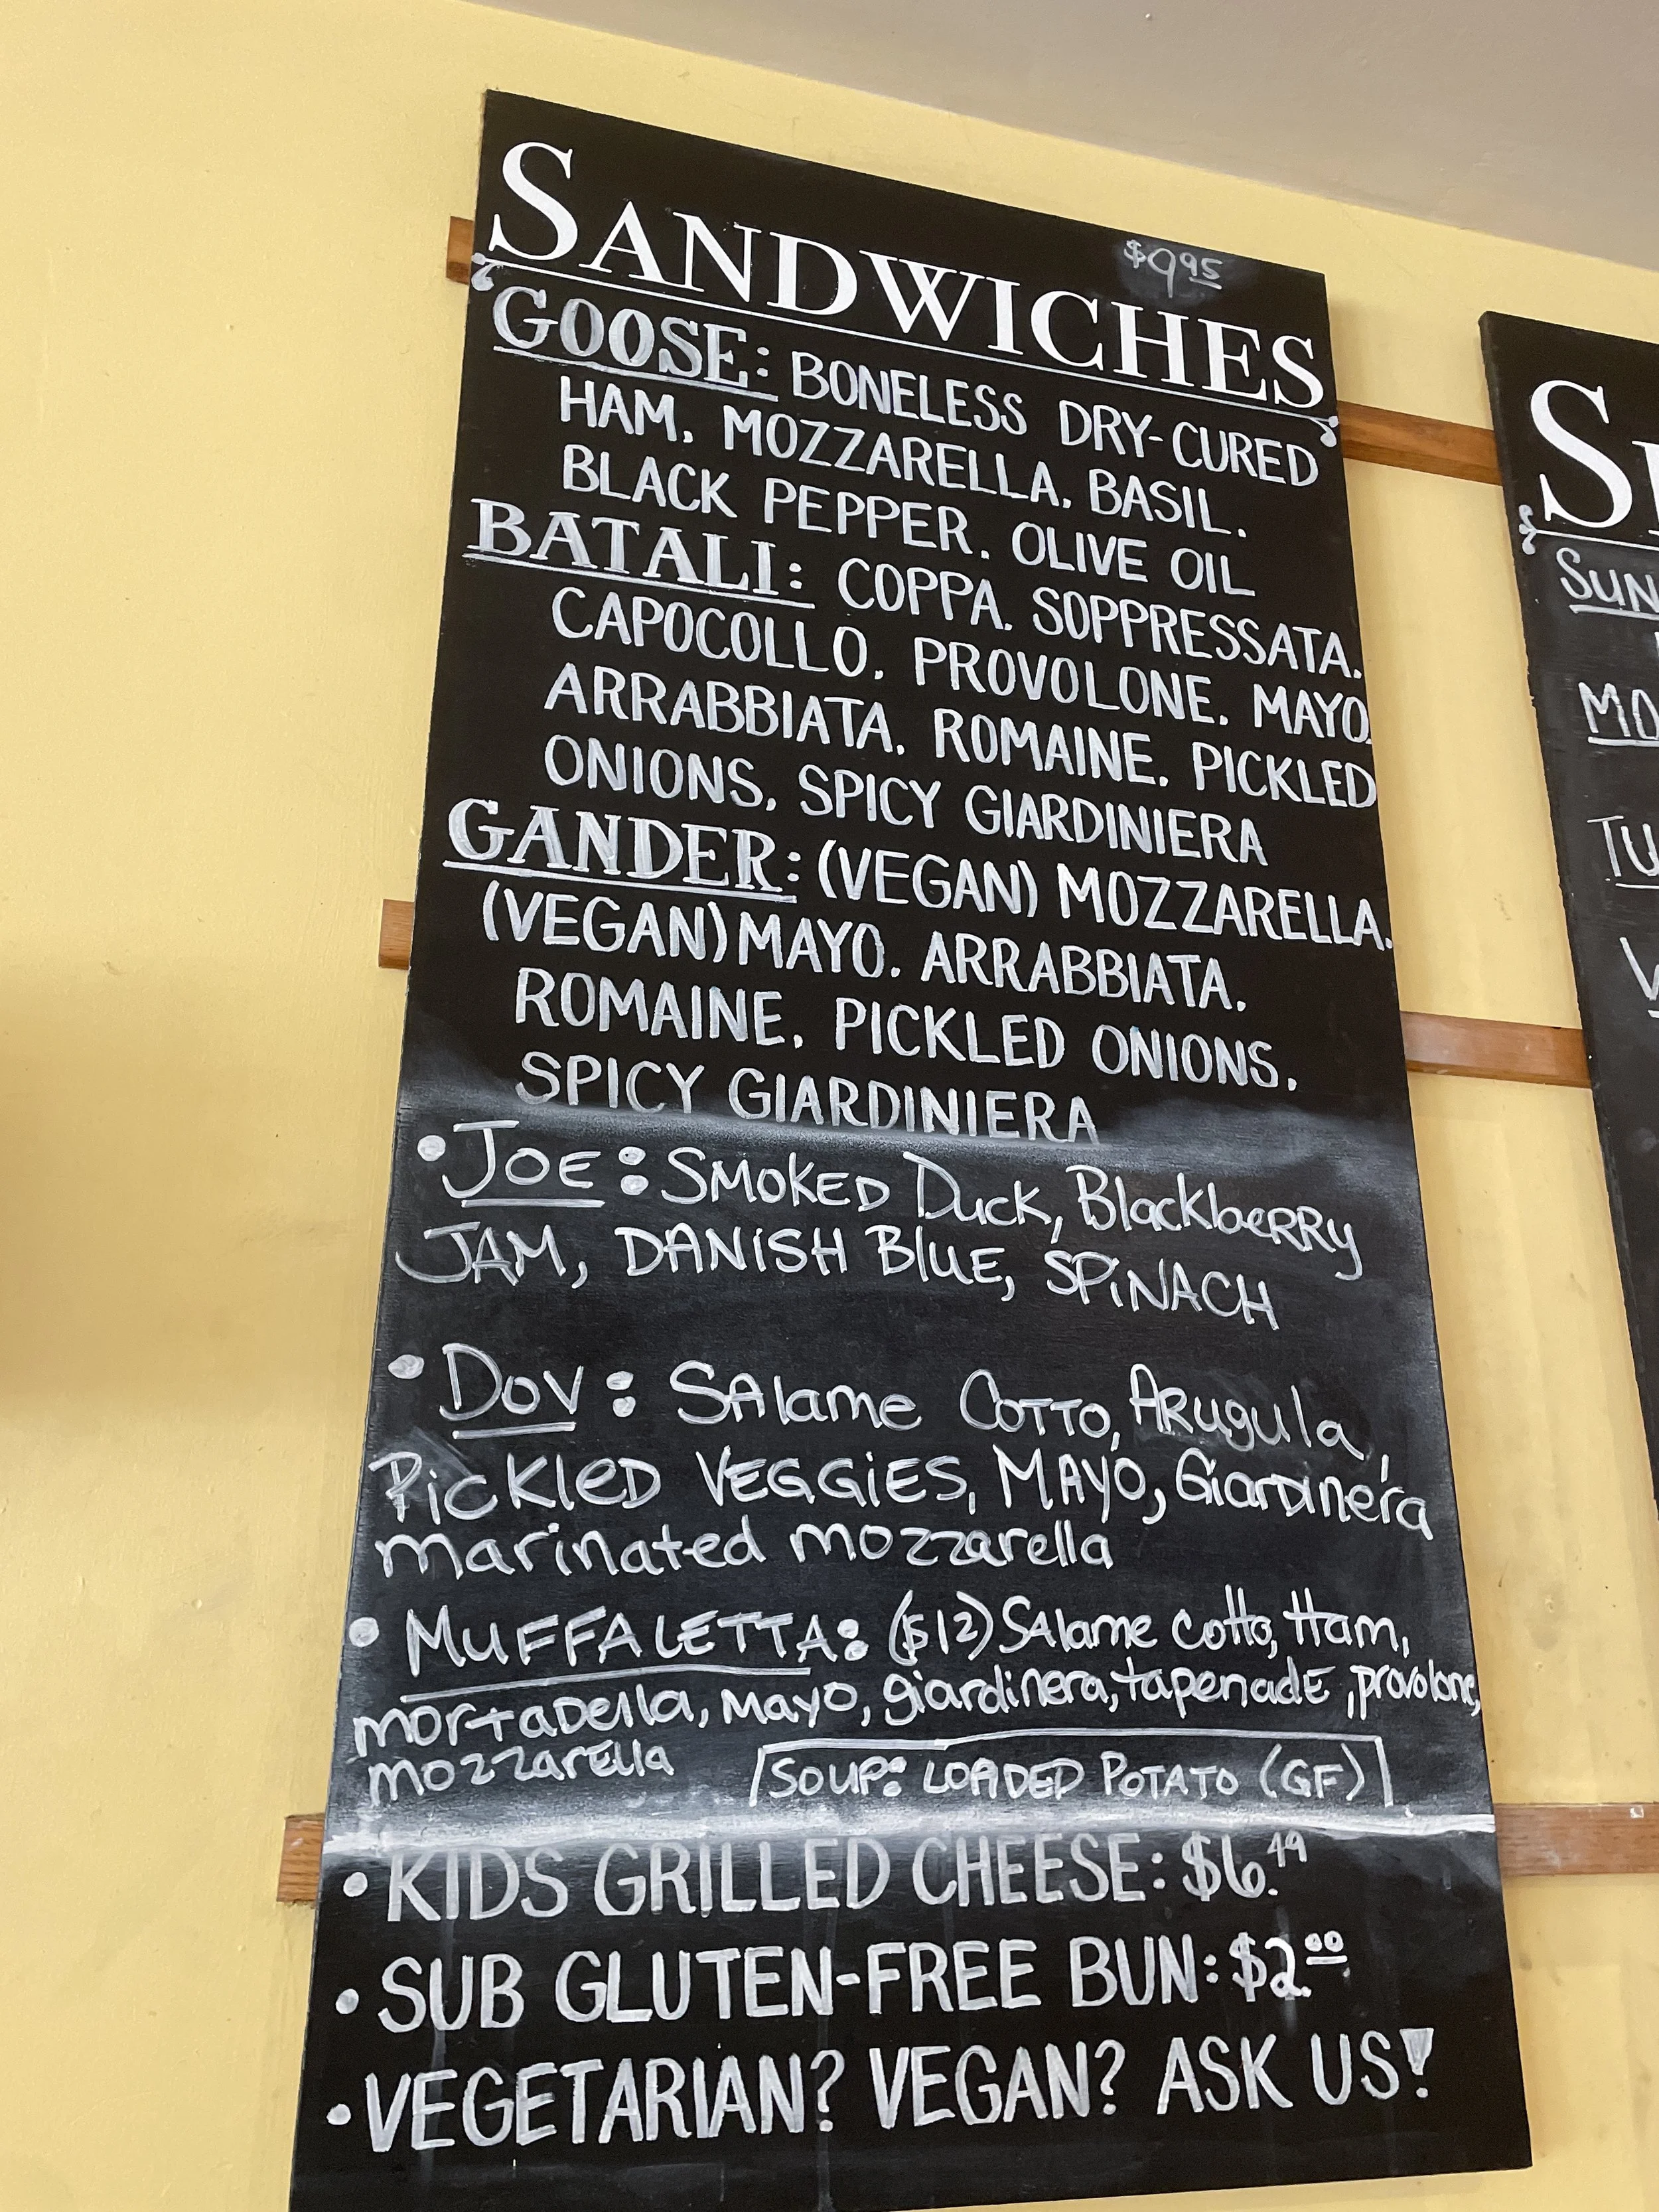 $9.95
SANDWICHES
GOOSE: BONELESS DRY-CURED
HAM. MOZZARELLA. BASIL.
BLACK PEPPER. OLIVE OIL
BATALI: COPPA. SOPPRESSATA.
CAPOCOLLO. PROVOLONE. MAYO.
ARRABBIATA. ROMAINE. PICKLED
ONIONS. SPICY GIARDINIERA
GANDER: (VEGAN) MOZZARELLA.
(VEGAN) MAYO. ARRABBIATA.
ROMAINE. PICKLED ONIONS.
SPICY GIARDINIERA
• JOE: SMOKED Duck, BlackbeRRy
JAM, DANiSH BluE, SPiNACH
• DOV: SAlame COTTO, ARugula,
PickleD VEGGiES, MAYO, GiarDinera
marinated mozzarella
• MUFFALETTA: ($12) SAlame cotto, Ham,
morTaDella, mayo, giardinera, tapenadE, provolone,
mozzarElla
SOUP: LOADED POTATO (GF)
• KIDS GRILLED CHEESE: $6.49
• SUB GLUTEN-FREE BUN: $2.00
• VEGETARIAN? VEGAN? ASK US!
S
SUN
MO
TU